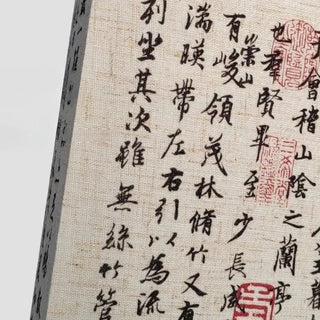 于會稽山陰之蘭亭
也羣賢畢至少長咸
有崇山峻領茂林脩竹又有
湍暎帶左右引以為流
列坐其次雖無絲竹管